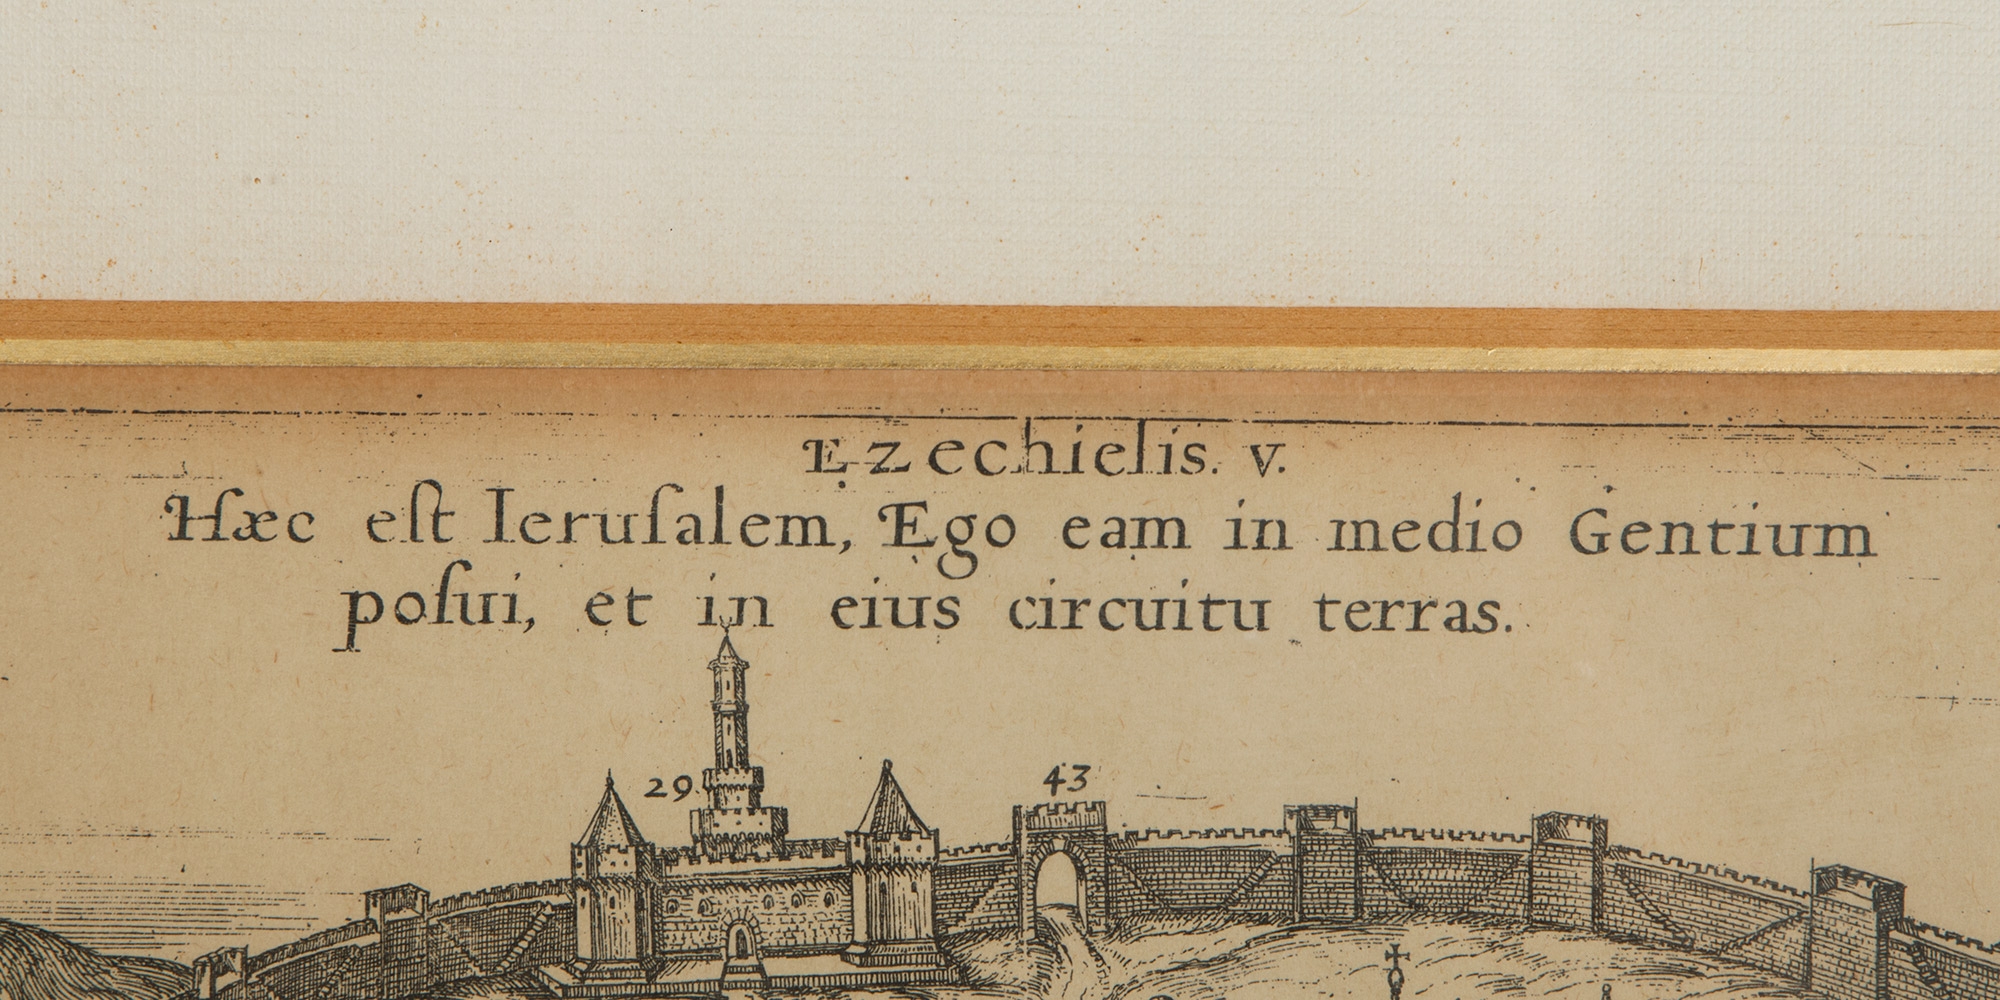 Ezechielis. v.
Hæc eſt Ieruſalem, Ego eam in medio Gentium
poſui, et in eius circuitu terras.
29.
43